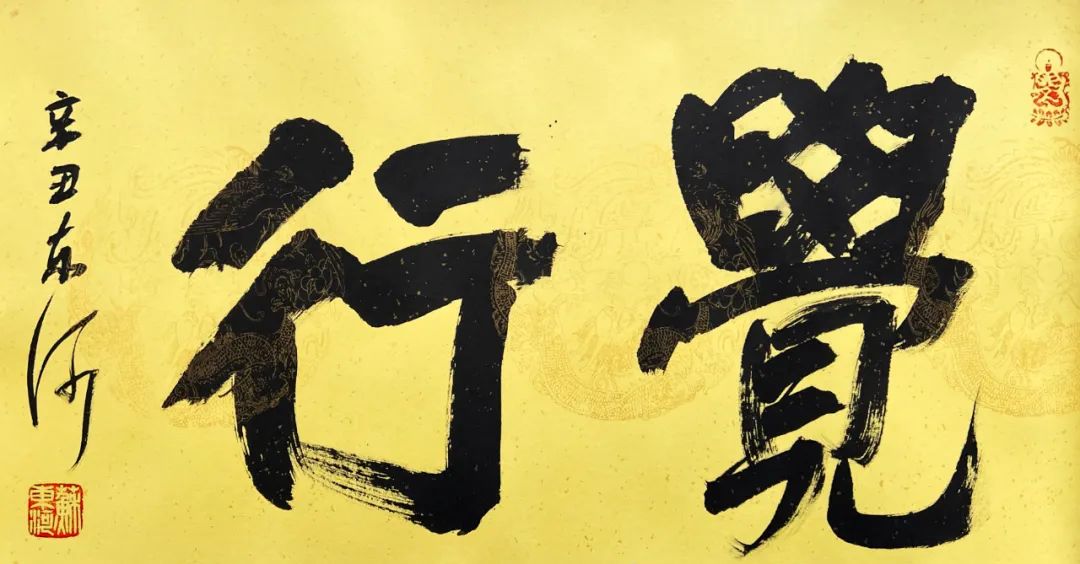 覺行
辛丑东河
蘇東河